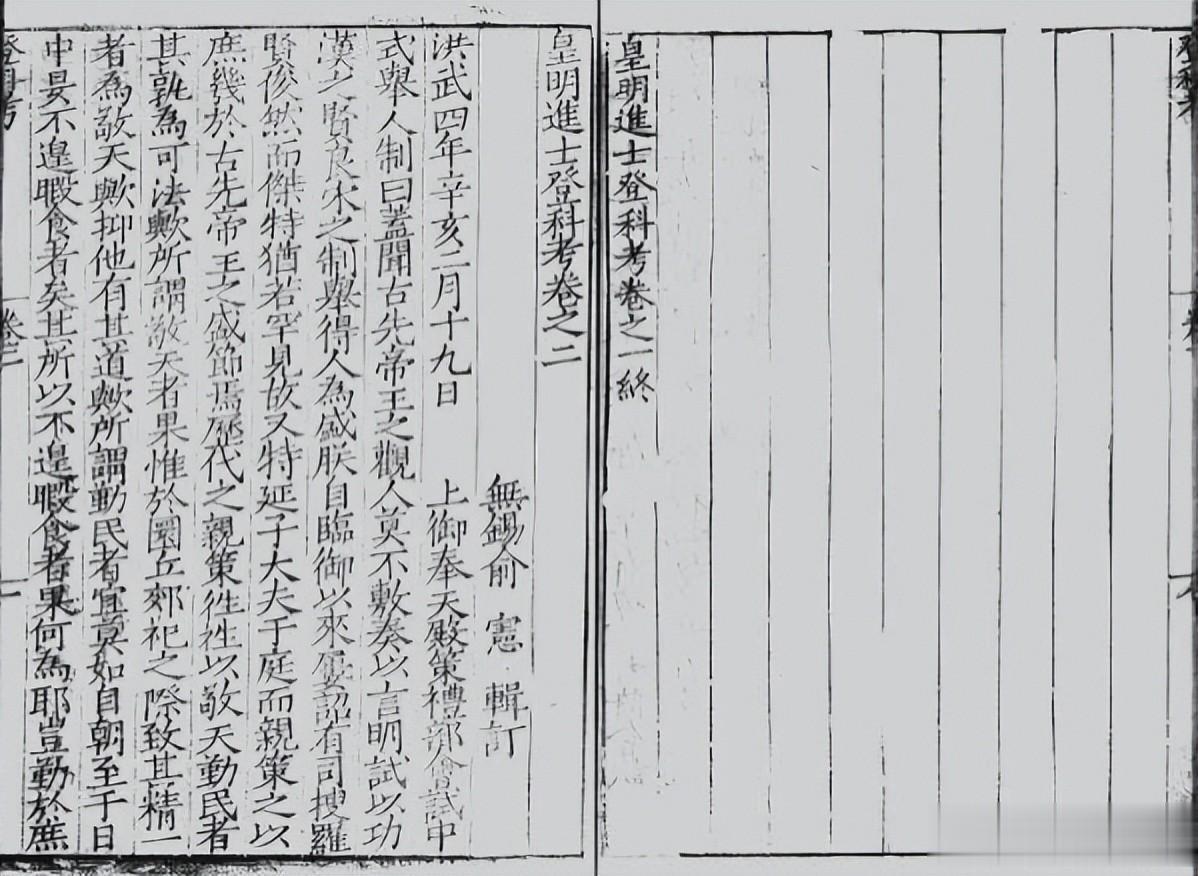 登科考
皇明進士登科考卷之一終
皇明進士登科考卷之二
無錫俞憲輯訂
洪武四年辛亥二月十九日 上御奉天殿策禮部會試中
式舉人制曰蓋聞古先帝王之觀人莫不敷奏以言明試以功
漢之賢良宋之制舉得人為盛朕自臨御以來屢詔有司搜羅
賢俊然而傑特猶若罕見故又特延子大夫于庭而親策之以
庶幾於古先帝王之盛節焉歷代之親策徃徃以敬天勤民者
其孰為可法歟所謂敬天者果惟於圜丘郊祀之際致其精一
者為敬天歟抑他有其道歟所謂勤民者宜莫如自朝至于日
中昃不遑暇食者矣其所以不遑暇食者果何為耶豈勤於庶
登科考
卷二
一